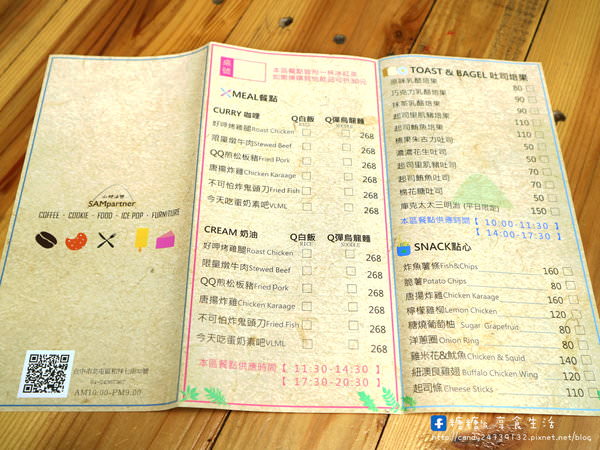 SAMpartner
COFFEE · COOKIE · FOOD · ICE POP · FURNITURE
AM10:00-PM9:00
桌號
本區餐點皆附一杯冰紅茶
MEAL餐點
CURRY 咖哩 Q白飯 Q彈烏龍麵
RICE NOODLE
好呷烤雞腿Roast Chicken 268
限量燉牛肉Stewed Beef 268
QQ煎松板豬Fried Pork 268
唐揚炸雞Chicken Karaage 268
不可怕炸鬼頭刀Fried Fish 268
今天吃蛋奶素吧VLML 268
CREAM 奶油 Q白飯 Q彈烏龍麵
RICE NOODLE
好呷烤雞腿Roast Chicken 268
限量燉牛肉Stewed Beef 268
QQ煎松板豬Fried Pork 268
唐揚炸雞Chicken Karaage 268
不可怕炸鬼頭刀Fried Fish 268
今天吃蛋奶素吧VLML 268
本區餐點供應時間【 11:30-14:30 】
【 17:30-20:30 】
TOAST & BAGEL 吐司焙果
原味乳酪焙果 80
巧克力乳酪焙果 90
抹茶乳酪焙果 90
起司里肌豬焙果 110
起司鮪魚焙果 110
榛果朱古力吐司 80
濃濃花生吐司 80
起司里肌豬吐司 120
起司鮪魚吐司 110
棉花糖吐司 50
庫克太太三明治 (平日限定) 150
本區餐點供應時間【 10:00-11:30 】
【 14:00-17:30 】
SNACK點心
炸魚薯條Fish&Chips 160
脆薯Potato Chips 80
唐揚炸雞Chicken Karaage 160
檸檬雞柳Lemon Chicken 120
糖燒葡萄柚 Sugar Grapefruit 80
洋蔥圈Onion Ring 80
雞米花&魷魚Chicken & Squid 140
紐澳良雞翅Buffalo Chicken Wing 120
起司條Cheese Sticks 110
糖糖's 享食生活
http://candy24939132.pixnet.net/blog